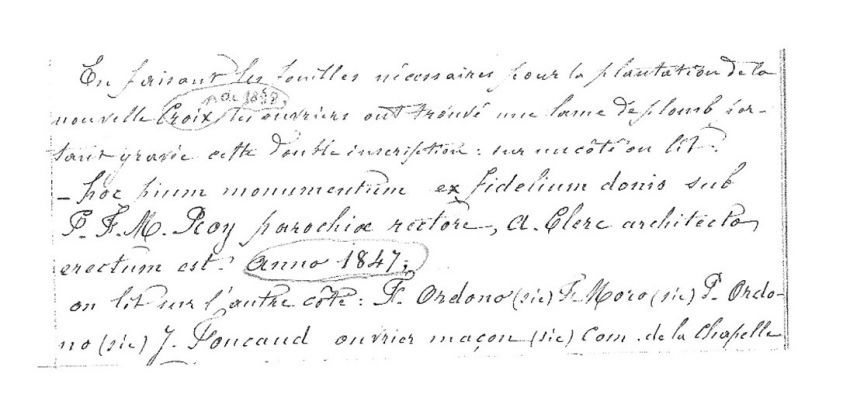 En faisant les fouilles nécessaires pour la plantation de la
nouvelle Croix, les ouvriers ont trouvé une lame de plomb por-
tant gravée cette double inscription : sur un côté on lit :
– hoc pium monumentum ex fidelium donis sub
P. F. M. Roy parochiæ rectore, A. Clerc architecto
erectum est. anno 1847 ;
on lit sur l'autre côté : F. Ordono (sic) F. Moro (sic) P. Ordo-
no (sic) J. Foucaud ouvrier maçon (sic) Com. de la Chapelle